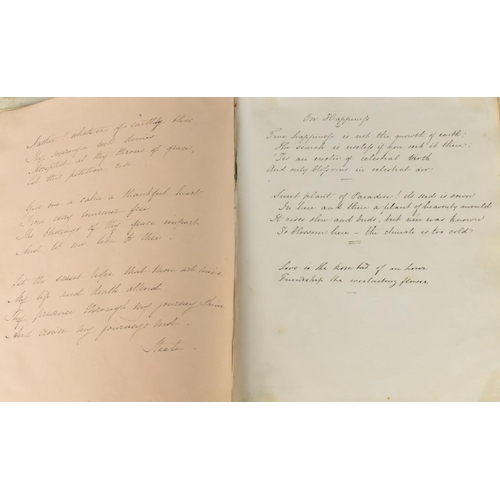 Father! whate'er of earthly bliss
Thy sovereign will denies
Accepted at thy throne of grace,
Let this petition rise
Give me a calm a thankful heart
From every murmur free
The blessings of thy grace impart
And let me live to thee.
Let the sweet hope that thou art mine
My life and death attend
Thy presence through my journey shine
And crown my journeys end.
Steele
On Happiness
True happiness is not the growth of earth:
The search is useless if you seek it there:
Tis an exotic of celestial birth
And only blossoms in celestial air.
Sweet plant of Paradise! its seed is sown
In here and there a plant of heavenly mould
It rises slow and buds, but ne'er was known
To blossom here – the climate is too cold
Love is the rose bud of an hour
Friendship the everlasting flower